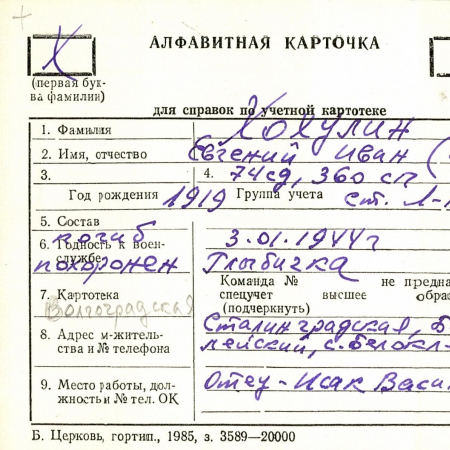 Х
АЛФАВИТНАЯ КАРТОЧКА
(первая бук-
ва фамилии)
для справок по учетной картотеке
1. Фамилия Хохулин
2. Имя, отчество Евгений Иван (
3. 4. 74сд, 360 сп
Год рождения 1919 Группа учета ст. Л-
5. Состав
погиб
6. Годность к воен- 3.01.1944г
службе
похоронен Глыбичка
Команда № не предна
7. Картотека спецучет высшее обра
Волгоградская (подчеркнуть)
8. Адрес м-житель- Сталинградская, Б
ства и № телефона лейский, с. Белокл-
9. Место работы, дол- Отец - Исак Васи
жность и № тел. ОК
Б. Церковь, гортип., 1985, з. 3589—20000